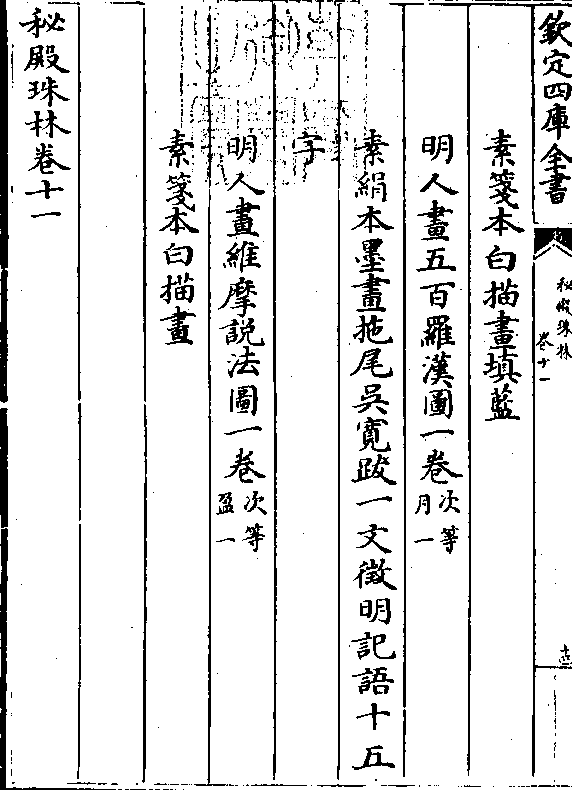 欽定四庫全書
秘殿珠林
卷十一
素箋本白描畫填藍
明人畫五百羅漢圖一卷次等月一
素絹本墨畫拖尾吳寬跋一文徵明記語十五
字
明人畫維摩說法圖一卷次等盈一
素箋本白描畫
秘殿珠林卷十一